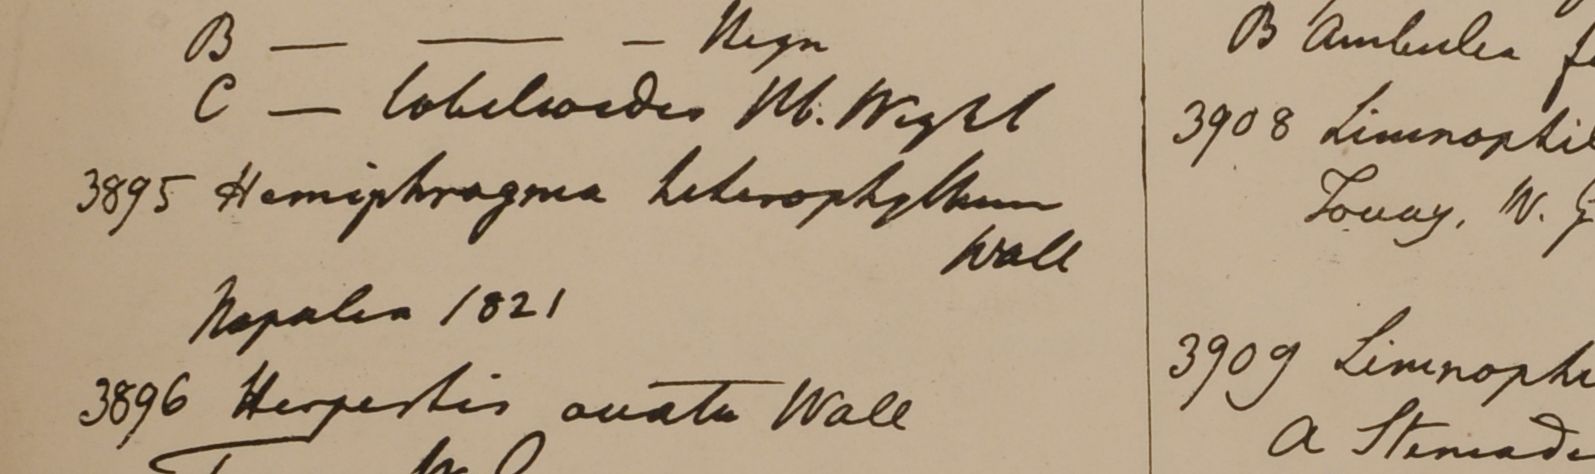 B — — — Heyn
C — lobelioides Hb. Wight
3895 Hemiphragma heterophyllum
Wall
Napalia 1821
3896 Herpestis ovata Wall
B Ambulia
3908 Limnophil
Tovay, W. G
3909 Limnophi
A